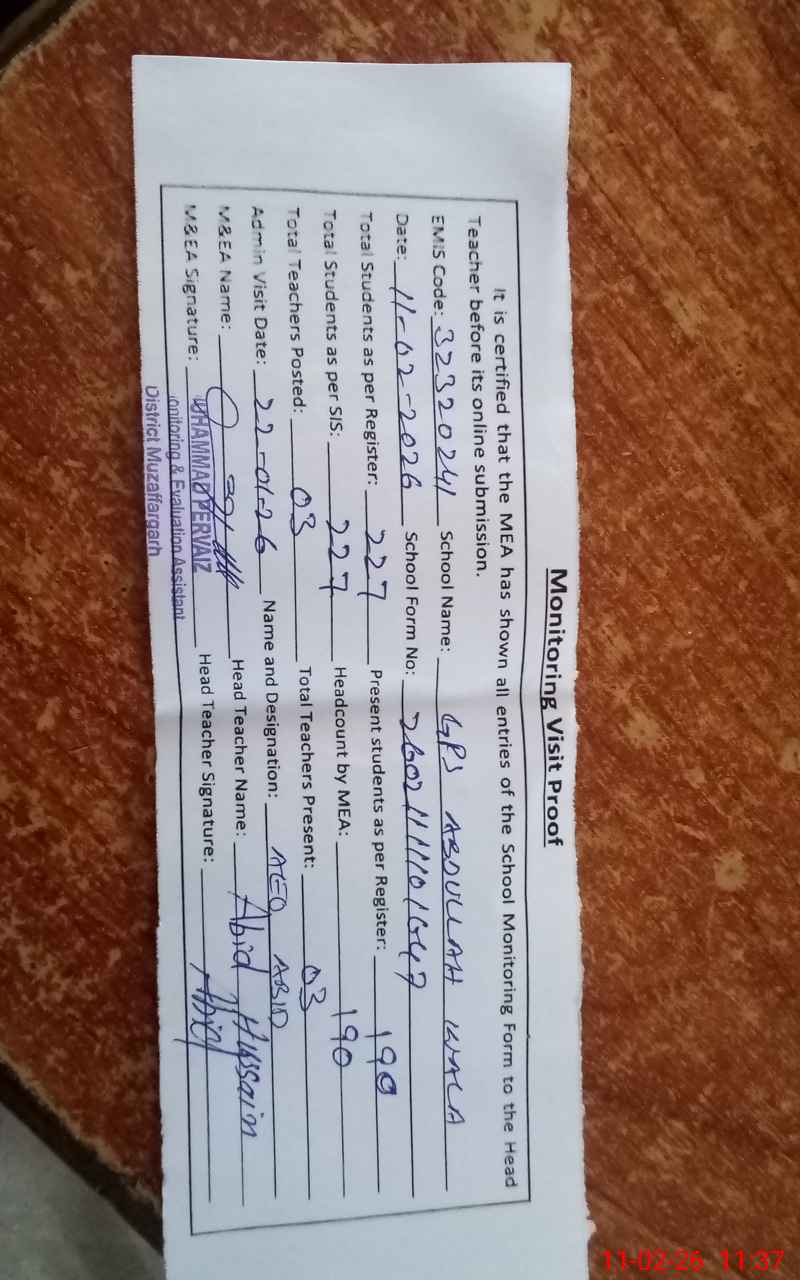 Monitoring Visit Proof
It is certified that the MEA has shown all entries of the School Monitoring Form to the Head
Teacher before its online submission.
EMIS Code: 32320241 School Name: GPS ABDULLAH WALA
Date: 11-02-2026 School Form No:
Total Students as per Register: 227 Present students as per Register: 190
Total Students as per SIS: 227 Headcount by MEA: 190
Total Teachers Posted: 03 Total Teachers Present: 03
Admin Visit Date: 22-01-26 Name and Designation: AEO ABID
M&EA Name: Head Teacher Name: Abid Hussain
M&EA Signature: Head Teacher Signature: Abid
UHAMMAD PERVAIZ
onitoring & Evaluation Assistant
District Muzaffargarh
11-02-26 11:37